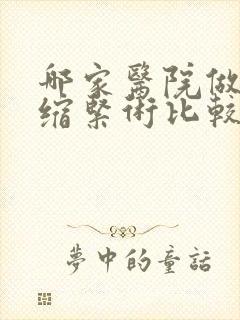 哪家醫院做
縮緊術比較
夢中的童話